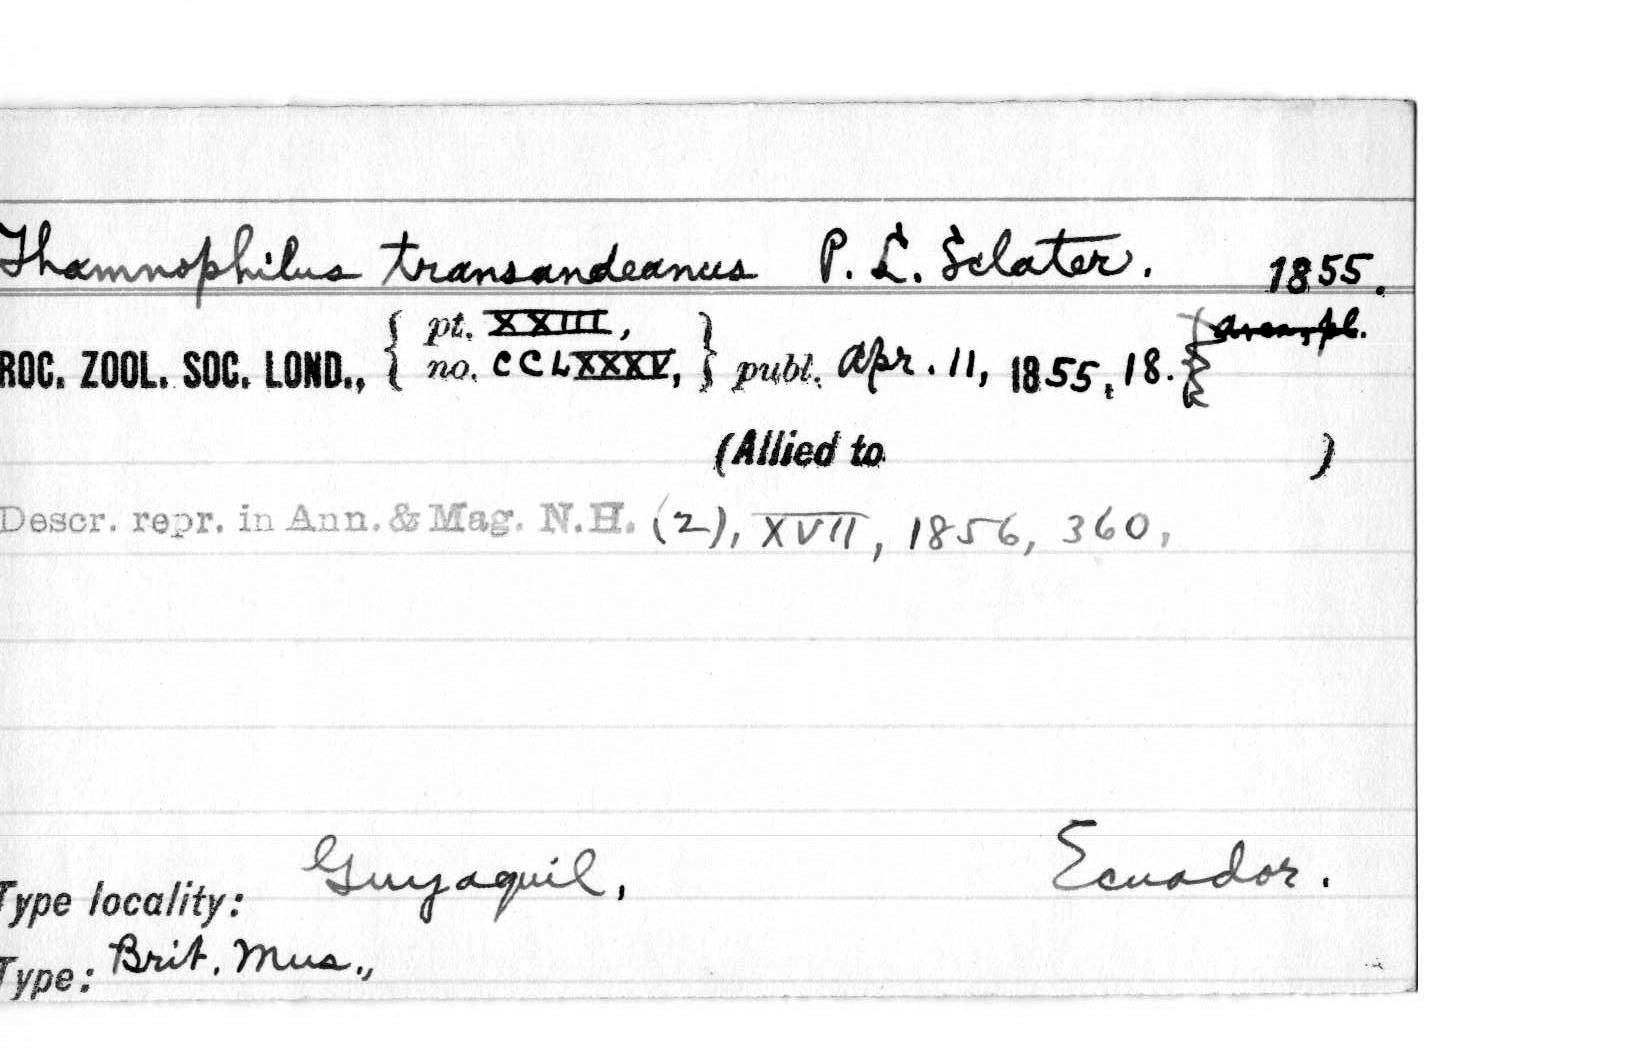 Thamnophilus transandeanus P. L. Sclater. 1855.
ROC. ZOOL. SOC. LOND., { pt. XXIII, no. CCLXXXV, } publ. Apr. 11, 1855, 18. { area, pl.
(Allied to )
Descr. repr. in Ann. & Mag. N.H. (2), XVII, 1856, 360,
Type locality: Guyaquil, Ecuador.
Type: Brit. Mus.,